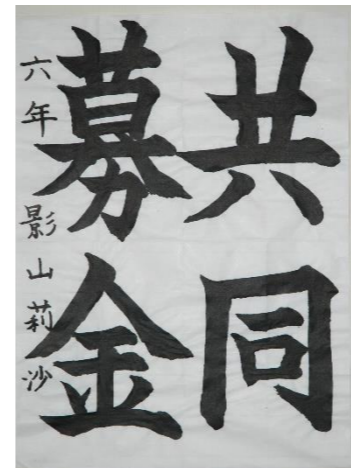 共同
募金
六年 影山莉沙